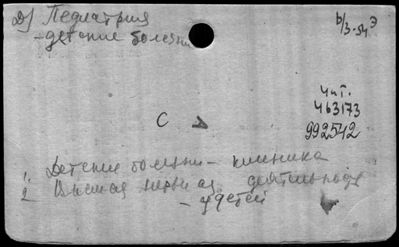 Д) Педиатрия
- детские болезни
b/3-54 Э
Чит.
463173
992542
С
1. Детские болезни - клиника
2 Высшая нервная деятельность
- у детей